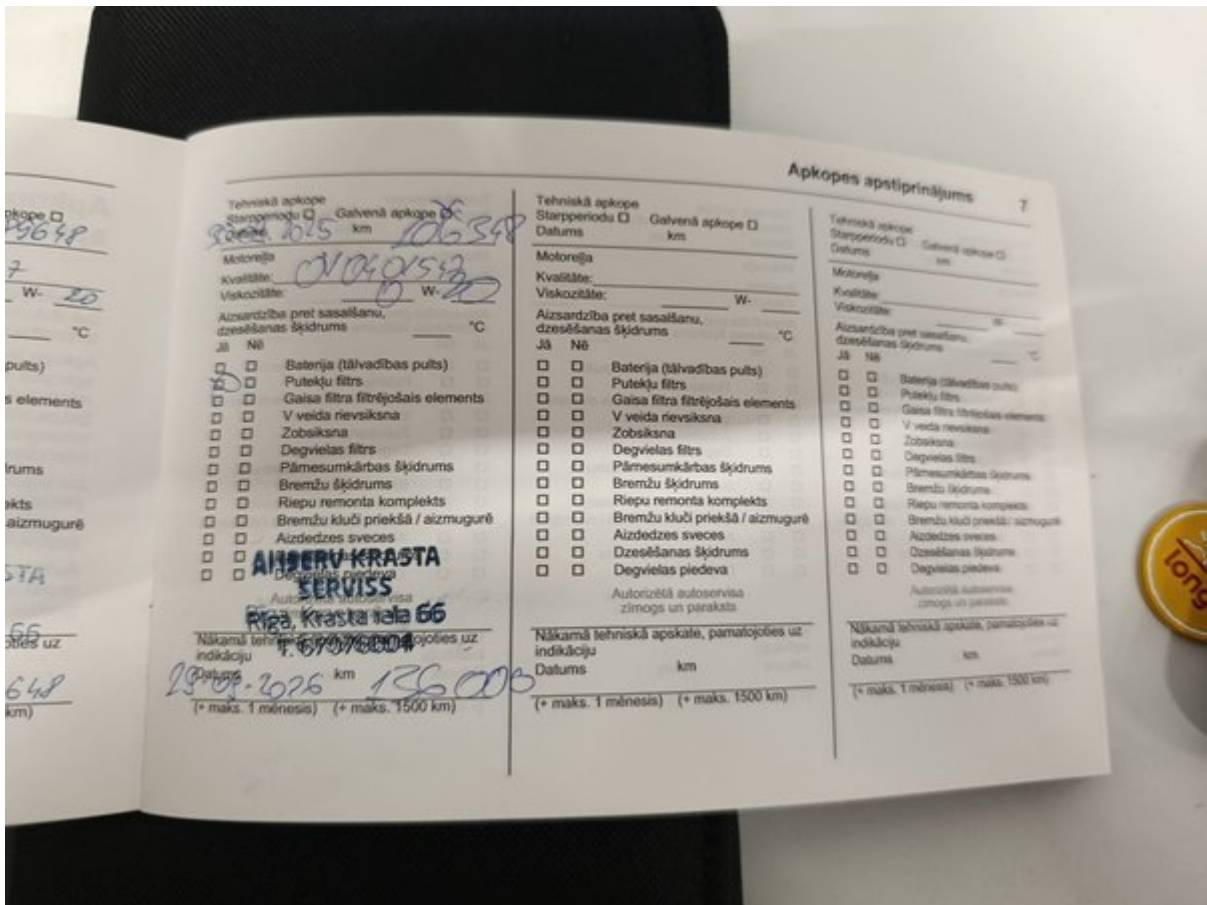 Apkopes apstiprinājums 7
pkope □
9648
7
W- 20
°C
pults)
s elements
drums
ekts
aizmugurē
STA
66
oties uz
648
km)
Tehniskā apkope
Starpperiodu □ Galvenā apkope □
2025 km 106348
Motoreļļa
Kvalitāte: OV0401547
Viskozitāte: 0 W- 20
Aizsardzība pret sasalšanu,
dzesēšanas šķidrums °C
Jā Nē
□ □ Baterija (tālvadības pults)
□ □ Putekļu filtrs
□ □ Gaisa filtra filtrējošais elements
□ □ V veida rievsiksna
□ □ Zobsiksna
□ □ Degvielas filtrs
□ □ Pārnesumkārbas šķidrums
□ □ Bremžu šķidrums
□ □ Riepu remonta komplekts
□ □ Bremžu kluči priekšā / aizmugurē
□ □ Aizdedzes sveces
□ □
□ □ Degvielas piedeva
Autorizētā autoservisa
KRASTA
SERVISS
Rīgā, Krasta ielā 66
Nākamā tehniskā apskate, pamatojoties uz
indikāciju
Datums km
2026 136 000
(+ maks. 1 mēnesis) (+ maks. 1500 km)
Tehniskā apkope
Starpperiodu □ Galvenā apkope □
Datums km
Motoreļļa
Kvalitāte:
Viskozitāte: W-
Aizsardzība pret sasalšanu,
dzesēšanas šķidrums °C
Jā Nē
□ □ Baterija (tālvadības pults)
□ □ Putekļu filtrs
□ □ Gaisa filtra filtrējošais elements
□ □ V veida rievsiksna
□ □ Zobsiksna
□ □ Degvielas filtrs
□ □ Pārnesumkārbas šķidrums
□ □ Bremžu šķidrums
□ □ Riepu remonta komplekts
□ □ Bremžu kluči priekšā / aizmugurē
□ □ Aizdedzes sveces
□ □ Dzesēšanas šķidrums
□ □ Degvielas piedeva
Autorizētā autoservisa
zīmogs un paraksts
Nākamā tehniskā apskate, pamatojoties uz
indikāciju
Datums km
(+ maks. 1 mēnesis) (+ maks. 1500 km)
Tehniskā apkope
Starpperiodu □ Galvenā apkope □
Datums km
Motoreļļa
Kvalitāte:
Viskozitāte: W-
Aizsardzība pret sasalšanu,
dzesēšanas šķidrums °C
Jā Nē
□ □ Baterija (tālvadības pults)
□ □ Putekļu filtrs
□ □ Gaisa filtra filtrējošais elements
□ □ V veida rievsiksna
□ □ Zobsiksna
□ □ Degvielas filtrs
□ □ Pārnesumkārbas šķidrums
□ □ Bremžu šķidrums
□ □ Riepu remonta komplekts
□ □ Bremžu kluči priekšā / aizmugurē
□ □ Aizdedzes sveces
□ □ Dzesēšanas šķidrums
□ □ Degvielas piedeva
Autorizētā autoservisa
zīmogs un paraksts
Nākamā tehniskā apskate, pamatojoties uz
indikāciju
Datums km
(+ maks. 1 mēnesis) (+ maks. 1500 km)
long